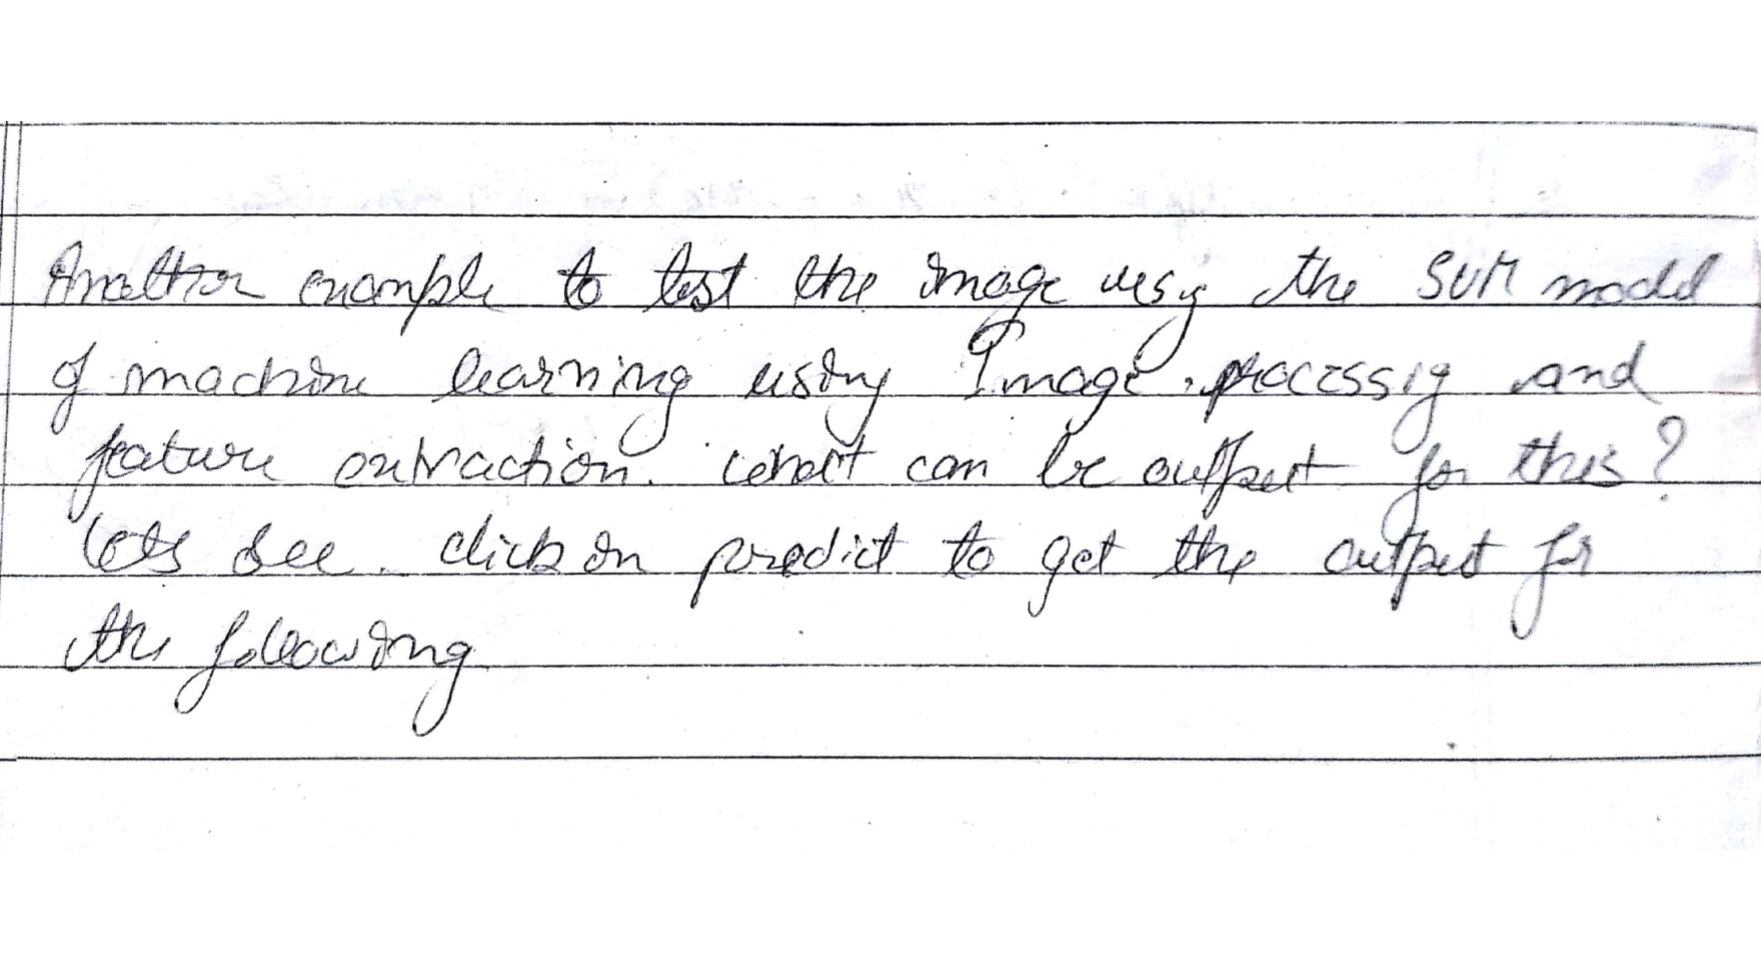 Another example to test the image usig the SVM model
of machine learning using Image processig and
feature extraction. what can be output for this?
lets see. click on predict to get the output for
the following